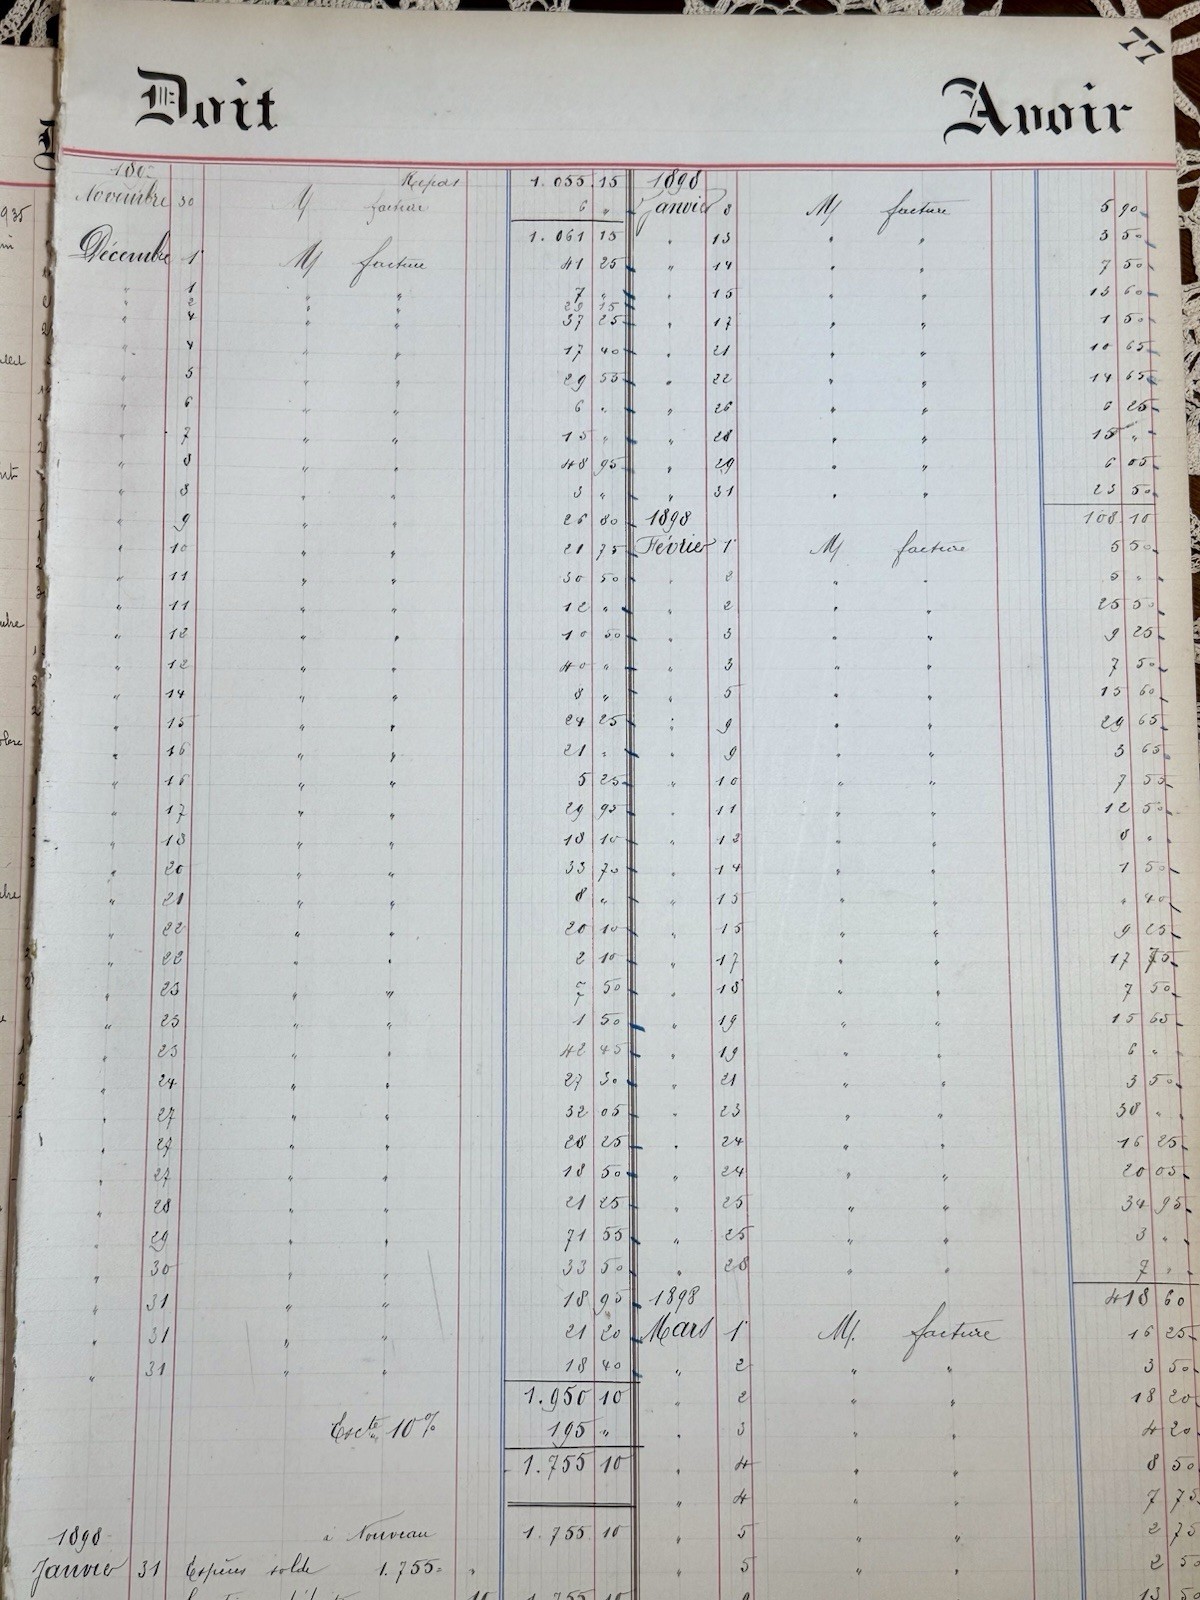 77
Doit Avoir
Report 1.055.15
Novembre 30 M/ facture 6 "
1.061 15
Décembre 1 M/ facture 41 25
" 1 " " 7 "
" 2 " " 29 15
" 4 " " 37 25
" 4 " " 17 40
" 5 " " 29 55
" 6 " " 6 "
" 7 " " 15 "
" 8 " " 48 95
" 8 " " 3 "
" 9 " " 26 80
" 10 " " 21 75
" 11 " " 30 50
" 11 " " 12 "
" 12 " " 10 50
" 12 " " 40 "
" 14 " " 8 "
" 15 " " 24 25
" 16 " " 21 "
" 16 " " 5 25
" 17 " " 29 95
" 18 " " 18 10
" 20 " " 33 70
" 21 " " 8 "
" 22 " " 20 10
" 22 " " 2 10
" 23 " " 7 50
" 23 " " 1 50
" 23 " " 42 45
" 24 " " 27 30
" 27 " " 32 05
" 27 " " 28 25
" 27 " " 18 50
" 28 " " 21 25
" 29 " " 71 55
" 30 " " 33 50
" 31 " " 18 95
" 31 " " 21 20
" 31 " " 18 40
1.950 10
Escte 10% 195 "
1.755 10
1898 à Nouveau 1.755.10
Janvier 31 Espèces solde 1.755 "
10 1.755 10
1898
Janvier 3 M/ facture 5 90
" 13 " " 3 50
" 14 " " 7 50
" 15 " " 13 60
" 17 " " 1 50
" 21 " " 10 65
" 22 " " 14 65
" 26 " " 6 25
" 28 " " 15 "
" 29 " " 6 05
" 31 " " 23 50
1898 108.10
Février 1 M/ facture 5 50
" 2 " " 5 "
" 2 " " 25 50
" 3 " " 9 25
" 3 " " 7 50
" 5 " " 15 60
" 9 " " 29 65
" 9 " " 3 65
" 10 " " 7 55
" 11 " " 12 50
" 12 " " 8 "
" 14 " " 1 50
" 15 " " " 40
" 15 " " 9 25
" 17 " " 17 75
" 18 " " 7 50
" 19 " " 15 65
" 19 " " 6 "
" 21 " " 3 50
" 23 " " 38 "
" 24 " " 16 25
" 24 " " 20 05
" 25 " " 34 95
" 25 " " 3 "
" 28 " " 7 "
1898 418 60
Mars 1 M/ facture 16 25
" 2 " " 3 50
" 2 " " 18 20
" 3 " " 4 20
" 4 " " 8 50
" 4 " " 7 75
" 5 " " 2 75
" 5 " " 2 50
13 50